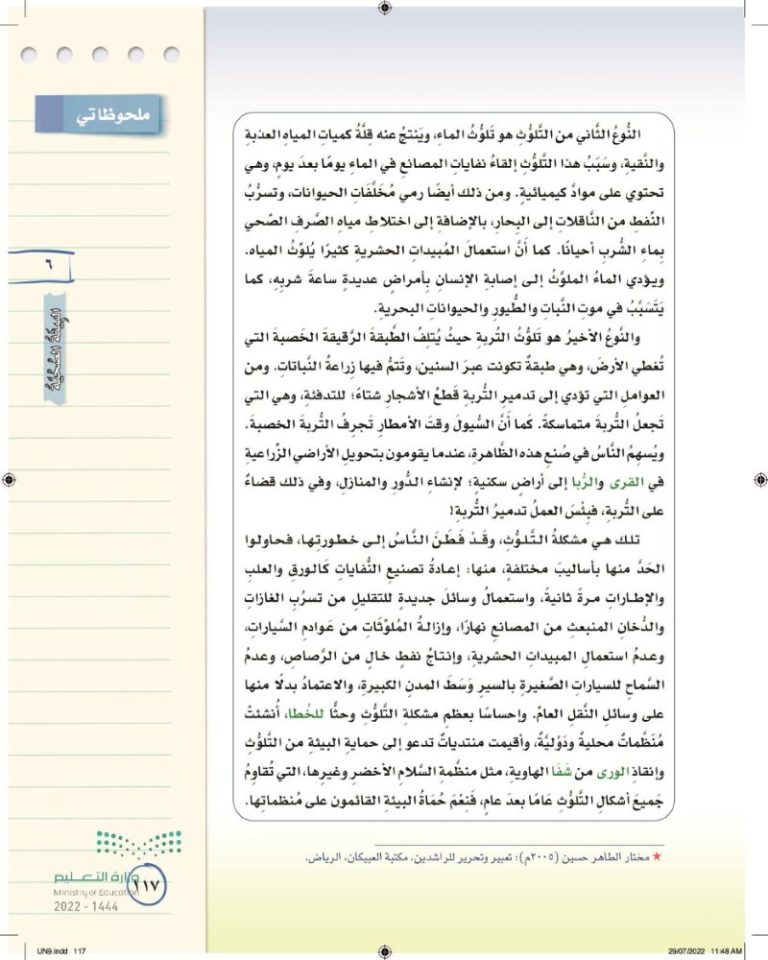 ملحوظاتي
النُّوعُ الثَّاني من التَّلوُّثِ هو تَلوُّثُ الماءِ، ويَنتجُ عنه قِلَّةُ كمياتِ المياهِ العذبةِ
والنَّقيةِ، وسَبَبُ هذا التَّلوُّثِ إلقاءُ نفاياتِ المصانعِ في الماءِ يومًا بعدَ يومٍ، وهي
تحتوي على موادَّ كيميائيةٍ. ومن ذلك أيضًا رمي مُخَلَّفَاتِ الحيوانات، وتسرُّبُ
النِّفطِ من النَّاقلاتِ إلى البحارِ، بالإضافةِ إلى اختلاطِ مياهِ الصَّرفِ الصِّحي
بِماءِ الشُّربِ أحيانًا. كما أنَّ استعمالَ المُبيداتِ الحشريةِ كثيرًا يُلوِّثُ المياه.
ويؤدي الماءُ الملوَّثُ إلى إصابةِ الإنسانِ بِأمراضٍ عديدةٍ ساعةَ شربِهِ، كما
يَتَسَبَّبُ في موتِ النَّباتِ والطُّيورِ والحيواناتِ البحريةِ.
والنوعُ الأخيرُ هو تَلوُّثُ التُّربةِ حيثُ يُتلِفُ الطَّبقةَ الرَّقيقةَ الخَصبةَ التي
تُغطي الأرضَ، وهي طبقةٌ تكونت عبرَ السنين، وتَتمُّ فيها زِراعةُ النَّباتاتِ. ومن
العواملِ التي تؤدي إلى تدميرِ التُّربةِ قَطعُ الأشجارِ شتاءً؛ للتدفئةِ، وهي التي
تَجعلُ التُّربةَ متماسكةً. كما أنَّ السُّيولَ وقتَ الأمطارِ تَجرِفُ التُّربةَ الخصبةَ.
ويُسهمُ النَّاسُ في صُنعِ هذه الظَّاهرةِ، عندما يقومون بتحويلِ الأراضي الزِّراعيةِ
في القرى والرُّبا إلى أراضٍ سكنيةٍ؛ لإنشاءِ الدُّورِ والمنازلِ، وفي ذلك قضاءٌ
على التُّربةِ، فبِئْسَ العملُ تدميرُ التُّربةِ!
تلك هي مشكلةُ التَّلوُّثِ، وقَدْ فَطَنَ النَّاسُ إلى خطورتِها، فحاولوا
الحَدَّ منها بأساليبَ مختلفةٍ، منها: إعادةُ تصنيعِ النُّفاياتِ كَالورقِ والعلبِ
والإطاراتِ مرةً ثانيةً، واستعمالُ وسائلَ جديدةٍ للتقليلِ من تسرُبِ الغازاتِ
والدُّخانِ المنبعثِ من المصانعِ نهارًا، وإزالةُ المُلوِّثاتِ من عوادمِ السَّياراتِ،
وعدمُ استعمالِ المبيداتِ الحشريةِ، وإنتاجُ نفطٍ خالٍ من الرَّصاصِ، وعدمُ
السَّماحِ للسياراتِ الصَّغيرةِ بالسيرِ وَسَطَ المدنِ الكبيرةِ، والاعتمادُ بدلًا منها
على وسائلِ النَّقلِ العامِّ. وإحساسًا بعظمِ مشكلةِ التَّلوُّثِ وحثًّا للخُطا، أُنشئتْ
مُنَظَّماتٌ محليةٌ ودَوْليَّةٌ، وأقيمت منتدياتٌ تدعو إلى حمايةِ البيئةِ من التَّلوُّثِ
وإنقاذِ الورى من شَفَا الهاويةِ، مثل منظَّمةِ السَّلامِ الأخضرِ وغيرِها، التي تُقاومُ
جَميعَ أشكالِ التَّلوُّثِ عامًا بعدَ عامٍ، فَنِعْمَ حُمَاةُ البيئةِ القائمون على مُنظماتِها.
٦
البيئة الصحية
★ مختار الطاهر حسين (٢٠٠٥م): تعبير وتحرير للراشدين، مكتبة العبيكان، الرياض.
وزارة التعليم
Ministry of Education
١١٧
2022 - 1444
UN9.indd 117
29/07/2022 11:48 AM